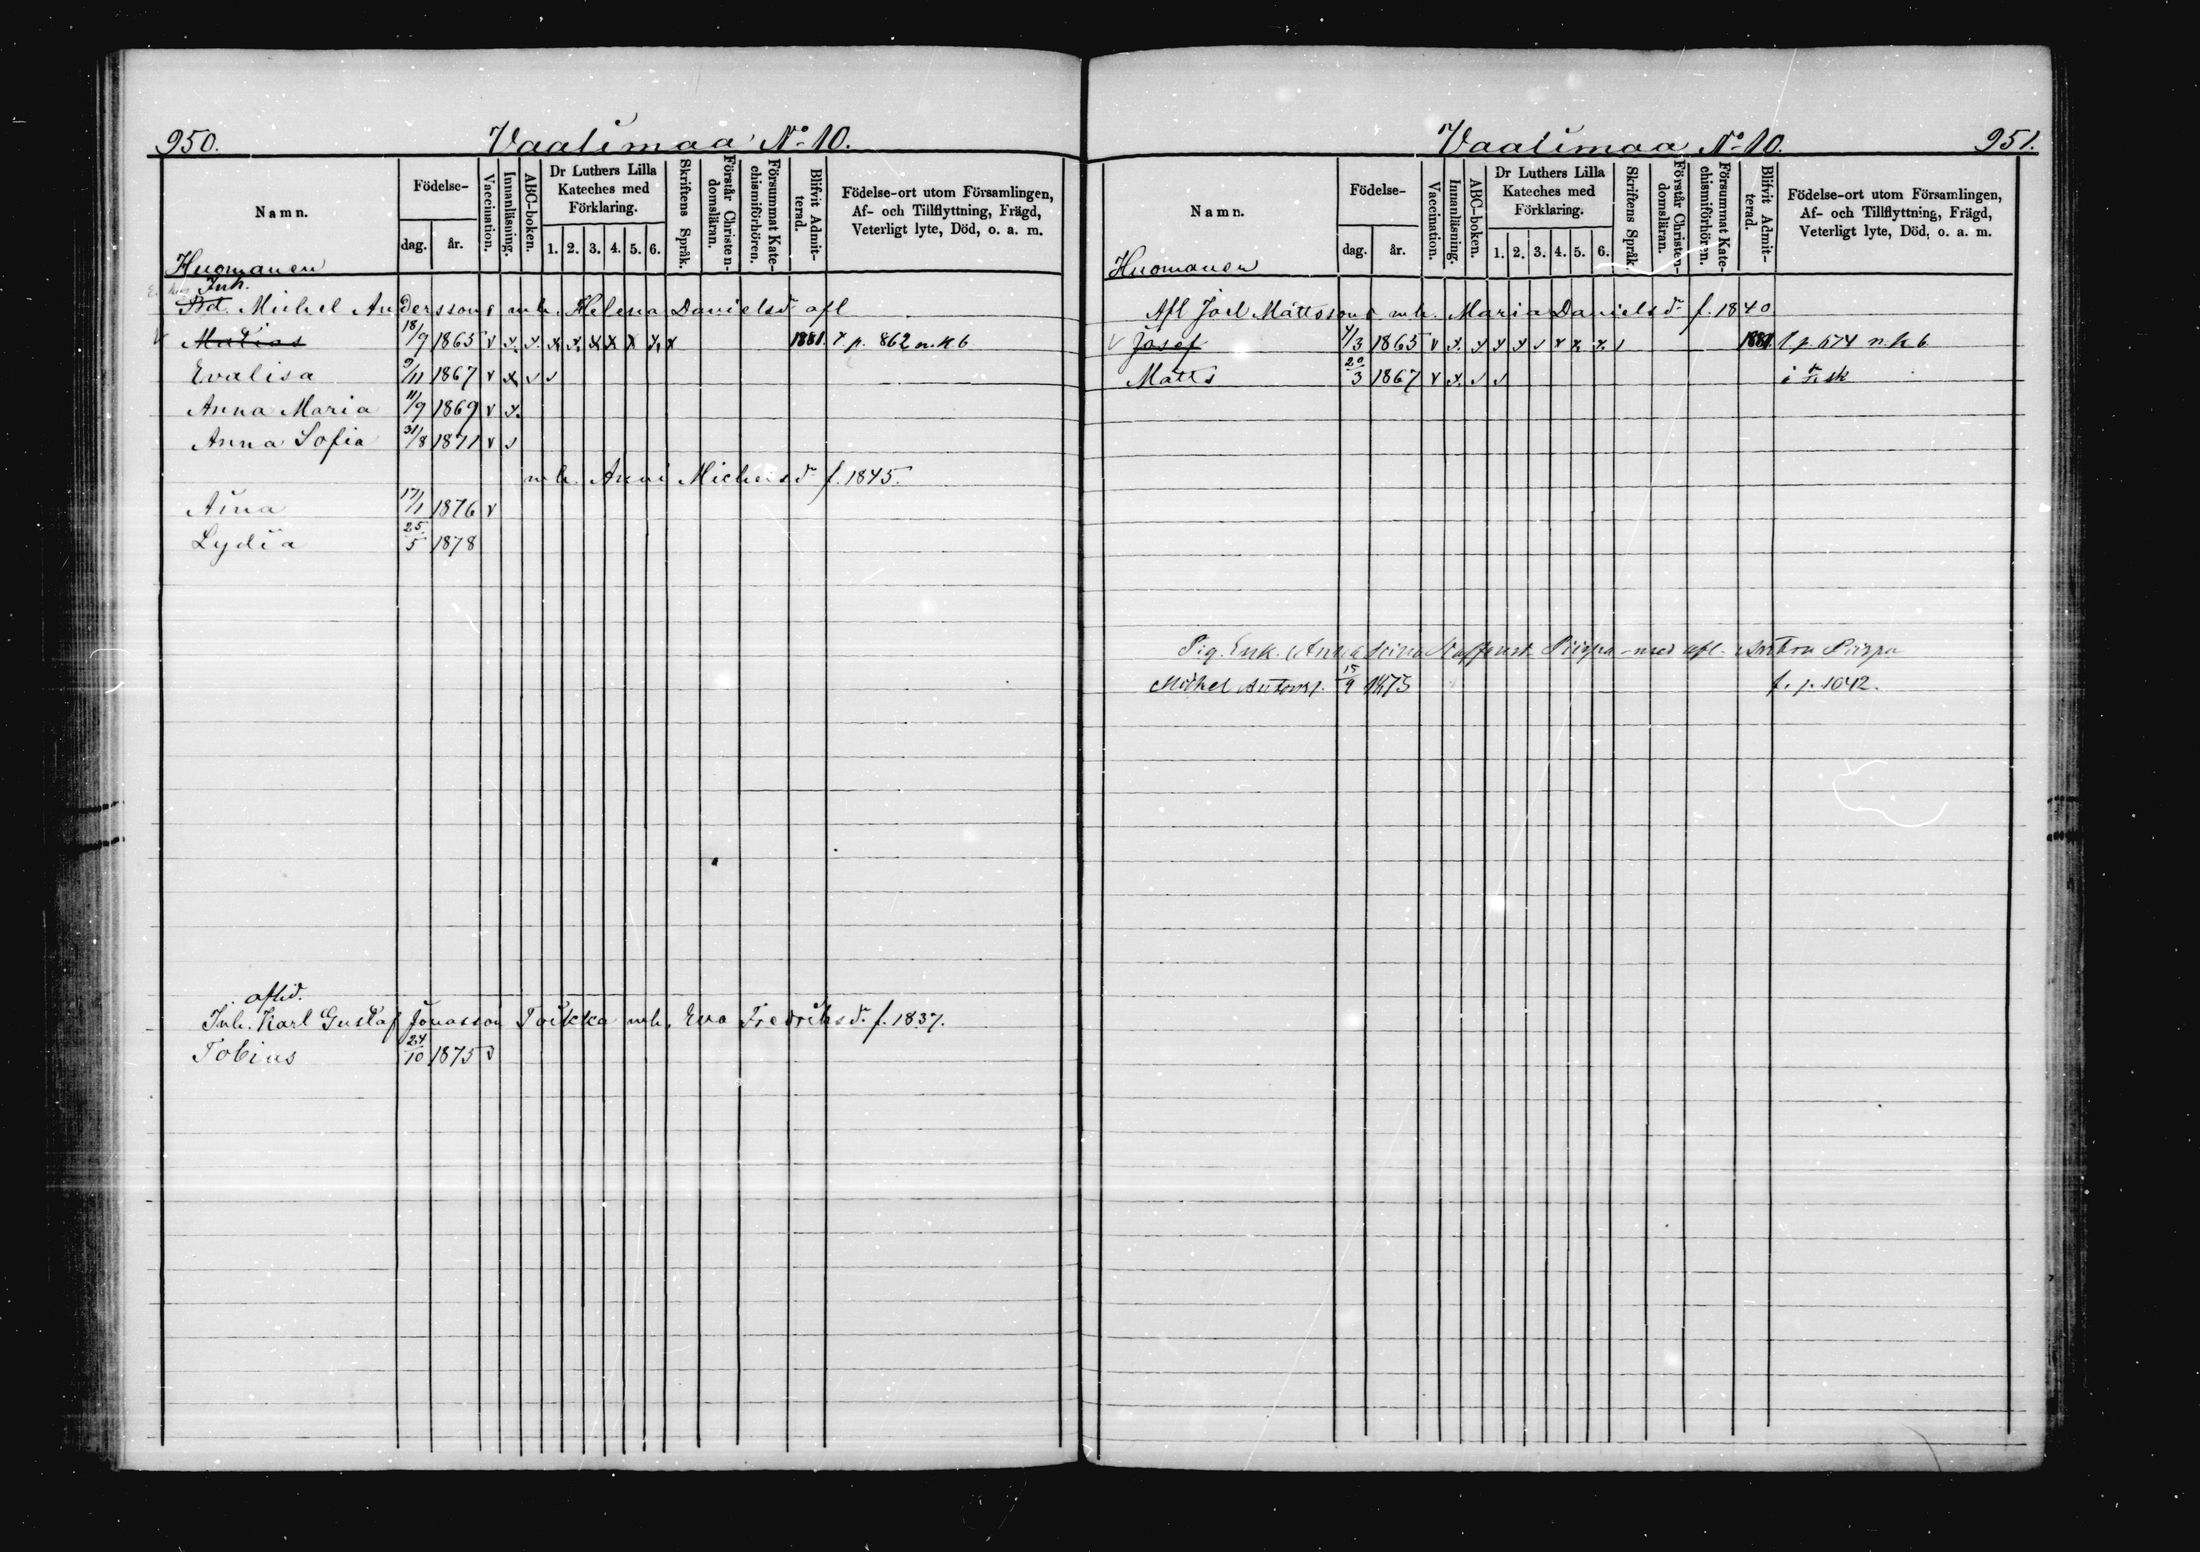 950. Vaalimaa No 10.
Namn. Födelse- dag. år. Vaccination. Innanläsning. ABC-boken. Dr Luthers Lilla Kateches med Förklaring. 1. 2. 3. 4. 5. 6. Skriftens Språk. Förstår Christendomsläran. Försummat Katechismiförhören. Blifvit Admitterad. Födelse-ort utom Församlingen, Af- och Tillflyttning, Frägd, Veterligt lyte, Död, o. a. m.
Huomanen
Inh.
Michel Anderssons mh. Helena Danielsd. afl
v Matias 18/9 1865 v x x x x x x x x x 1881. p. 862 n. k b
Evalisa 9/11 1867 v x v v
Anna Maria 11/9 1869 v x
Anna Sofia 31/8 1871 v v
mh. Anni Michelsd. f. 1845.
Aina 17/1 1876 v
Lydia 25/5 1878
aflid.
Inh. Karl Gustaf Jonasson Toikka mh. Eva Fredriksd. f. 1837.
Tobias 24/10 1875 v
Vaalimaa No 10. 951.
Namn. Födelse- dag. år. Vaccination. Innanläsning. ABC-boken. Dr Luthers Lilla Kateches med Förklaring. 1. 2. 3. 4. 5. 6. Skriftens Språk. Förstår Christendomsläran. Försummat Katechismiförhören. Blifvit Admitterad. Födelse-ort utom Församlingen, Af- och Tillflyttning, Frägd, Veterligt lyte, Död, o. a. m.
Huomanen
Afl Joel Mattssons mh. Maria Danielsd. f. 1840
v Josef 4/3 1865 v x x x x v x x x v 1881. p. 574 n. k b
Matts 20/3 1867 v x v v
Enk. Anna Piispa med afl. Anton Piispa
Michel Antons. 15/9 1875 f. p. 1042.